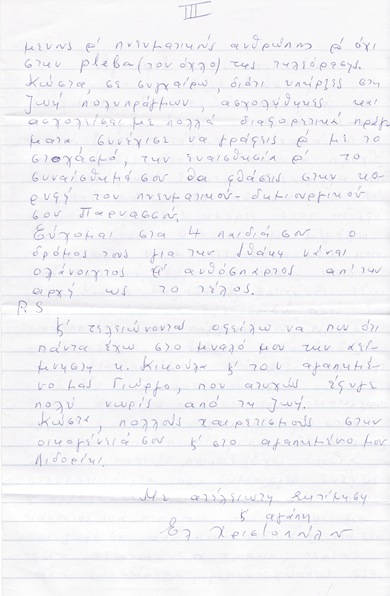 III
μένους & πνευματικούς ανθρώπους & όχι
στην pleba (τον όχλο) της τηλεόρασης.
Κώστα, σε συγχαίρω, διότι υπήρξες στη
ζωή πολυπράγμων, ασχολήθηκες και
ασχολείσαι με πολλά διαφορετικά πράγ
ματα. συνέχισε να γράφεις & με το
στοχασμό, την ευαισθησία & το
συναίσθημά σου θα φθάσεις στην κο-
ρυφή του πνευματικού-δημιουργικού
σου Παρνασσού.
Εύχομαι στα 4 παιδιά σου ο
δρόμος τους για την Ιθάκη νάναι
ολάνοιχτος & ανθόσπαρτος απ' την
αρχή ως το τέλος.
P.S
ξ' τελειώνοντας οφείλω να πω ότι
πάντα έχω στο μυαλό μου την αεί-
μνηστη κ. Κικούλα ξ' τον αγαπημέ-
νο μας Γιώργο, που ατυχώς έφυγε
πολύ νωρίς από τη ζωή.
Κώστα, πολλούς χαιρετισμούς στην
οικογένειά σου ξ' στο αγαπημένο μου
Λιδορίκι.
Με ατέλειωτη εκτίμηση
ξ αγάπη
Ελ Χριστοπούλου